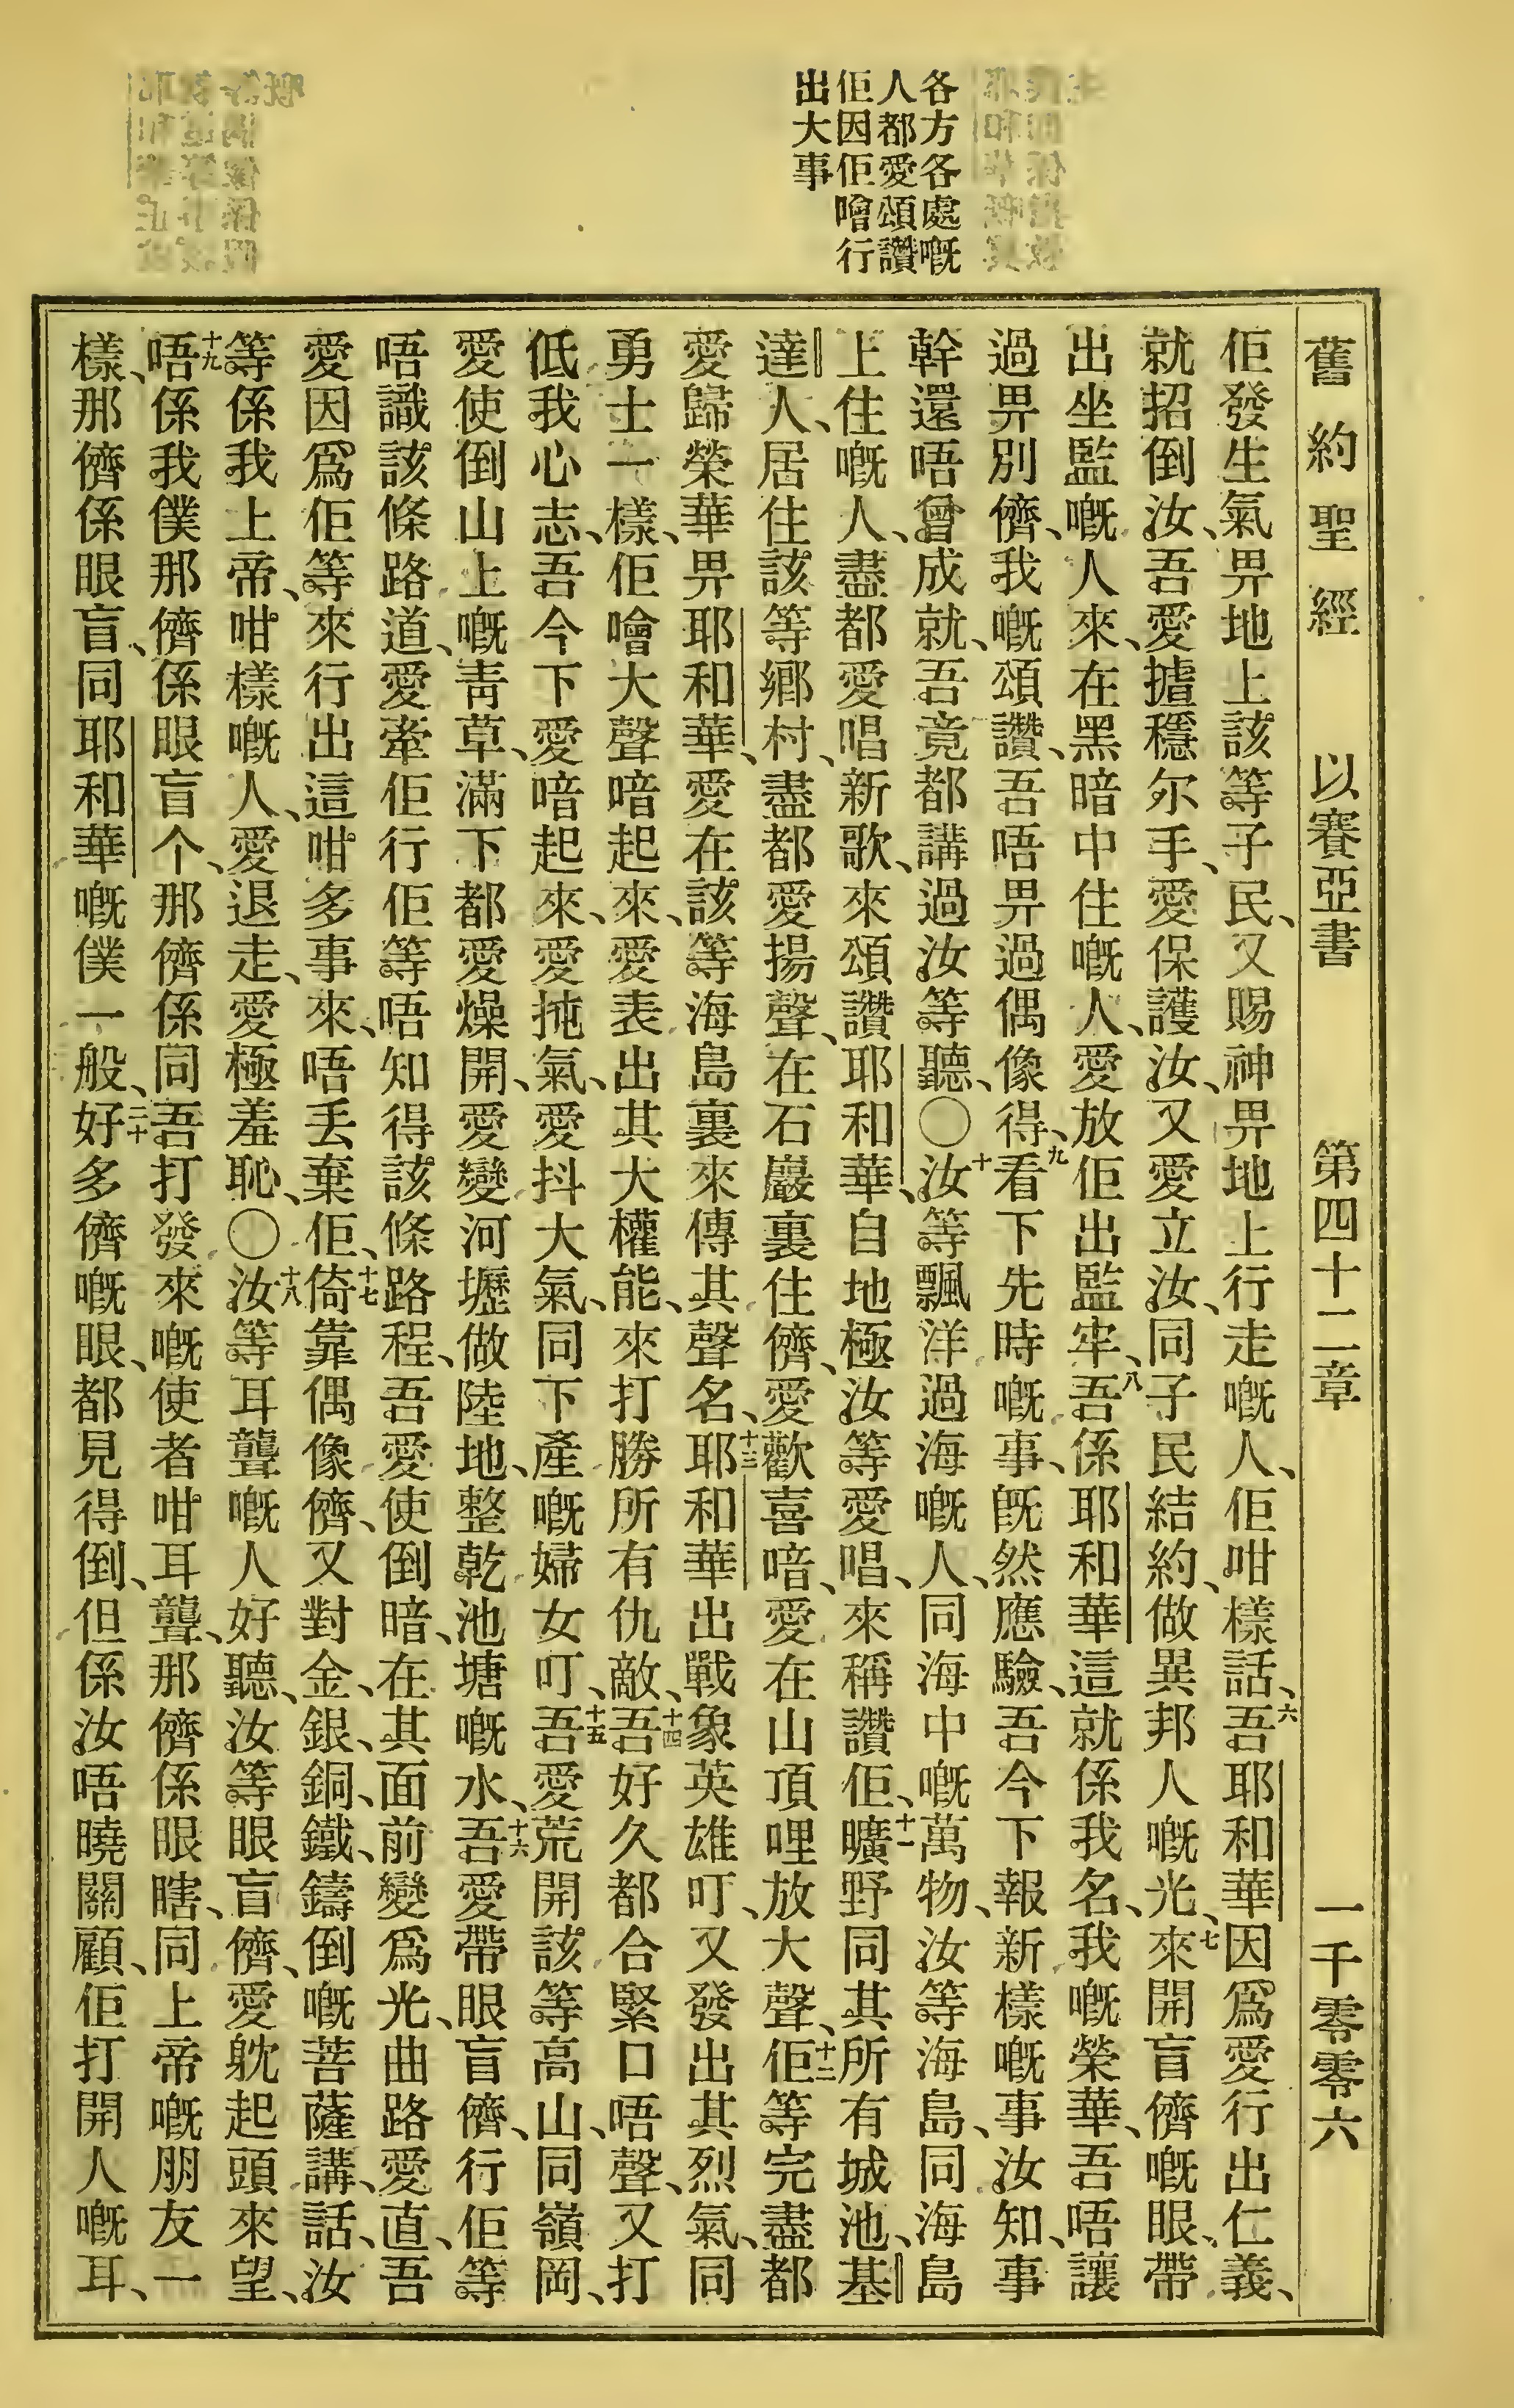 各方各處嘅
人都愛頌讚
佢因佢噲行
出大事
舊約聖經 以賽亞書 第四十二章 一千零零六
佢發生氣畀地上該等子民、又賜神畀地上行走嘅人、佢咁樣話、六吾耶和華因爲愛行出仁義、
就招倒汝、吾愛揸穩尔手、愛保護汝、又愛立汝、同子民結約、做異邦人嘅光、七來開盲儕嘅眼、帶
出坐監嘅人來、在黑暗中住嘅人、愛放佢出監牢、八吾係耶和華這就係我名、我嘅榮華、吾唔讓
過畀別儕、我嘅頌讚、吾唔畀過偶像得、九看下先時嘅事、旣然應驗、吾今下報新樣嘅事、汝知、事
幹還唔曾成就、吾竟都講過汝等聽、〇十汝等飄洋過海嘅人、同海中嘅萬物、汝等海島、同海島
上住嘅人、盡都愛唱新歌、來頌讚耶和華、自地極汝等愛唱、來稱讚佢、十一曠野同其所有城池、基
達人、居住該等鄉村、盡都愛揚聲、在石巖裏住儕、愛歡喜喑、愛在山頂哩放大聲、十二佢等完盡都
愛歸榮華畀耶和華、愛在該等海島裏來傳其聲名、十三耶和華出戰象英雄叮、又發出其烈氣、同
勇士一樣、佢噲大聲喑起來、愛表出其大權能、來打勝所有仇敵、十四吾好久都合緊口唔聲、又打
低我心志、吾今下愛喑起來、愛扽氣、愛抖大氣、同下產嘅婦女叮、十五吾愛荒開該等高山、同嶺岡、
愛使倒山上嘅靑草、滿下都愛燥開、愛變河壢做陸地、整乾池塘嘅水、十六吾愛帶眼盲儕、行佢等
唔識該條路道、愛牽佢行佢等唔知得該條路程、吾愛使倒暗、在其面前變爲光、曲路愛直、吾
愛因爲佢等來行出這咁多事來、唔丢棄佢、十七倚靠偶像儕、又對金、銀、銅、鐵、鑄倒嘅菩薩講、話、汝
等係我上帝、咁樣嘅人、愛退走、愛極羞恥、〇十八汝等耳聾嘅人好聽、汝等眼盲儕、愛躭起頭來望、
十九唔係我僕那儕係眼盲个、那儕係同吾打發來嘅使者咁耳聾、那儕係眼瞎、同上帝嘅朋友一
樣、那儕係眼盲、同耶和華嘅僕一般、二十好多儕嘅眼、都見得倒、但係汝唔曉關顧、佢打開人嘅耳、